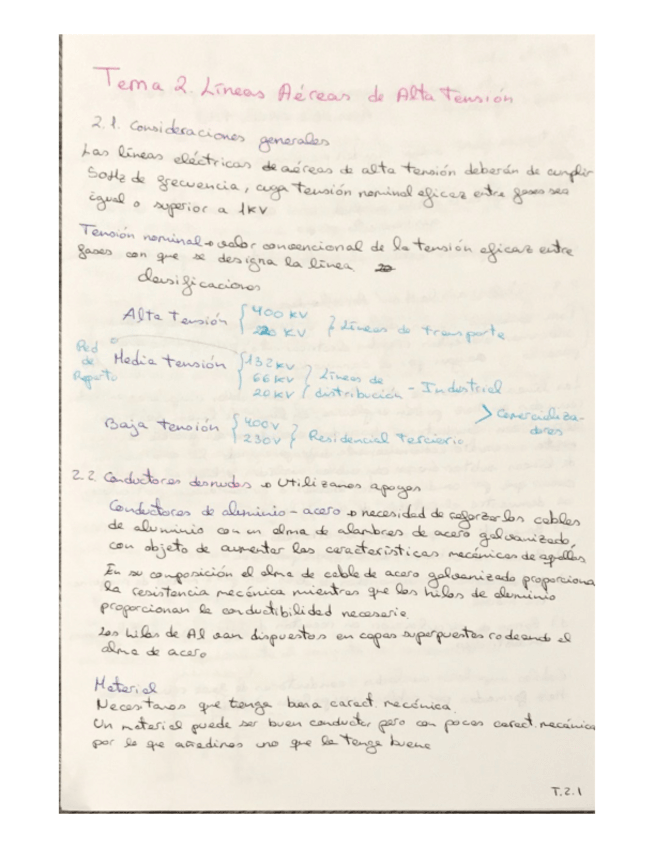 Tema 2. Líneas Aéreas de Alta Tensión
2.1. Consideraciones generales
Las líneas eléctricas de aéreas de alta tensión deberán de cumplir
50Hz de frecuencia, cuya tensión nominal eficaz entre fases sea
igual o superior a 1kV
Tensión nominal → valor convencional de la tensión eficaz entre
fases con que se designa la línea
clasificaciones
Alta Tensión { 400 kV
220 kV } Líneas de transporte
Red de Reparto
Media tensión { 132 kV
66 kV
20 kV } Líneas de distribución - Industrial
> Comercializadores
Baja tensión { 400V
230V } Residencial Terciario
2.2. Conductores desnudos → Utilizamos apoyos
Conductores de aluminio - acero → necesidad de reforzar los cables
de aluminio con un alma de alambres de acero galvanizado,
con objeto de aumentar las características mecánicas de aquellos
En su composición el alma de cable de acero galvanizado proporciona
la resistencia mecánica mientras que los hilos de aluminio
proporcionan la conductibilidad necesaria.
Los hilos de Al van dispuestos en capas superpuestas rodeando el
alma de acero
Material
Necesitamos que tenga buena caract. mecánica.
Un material puede ser buen conductor pero con pocas caract. mecánica
por lo que añadimos uno que la tenga buena
T.2.1